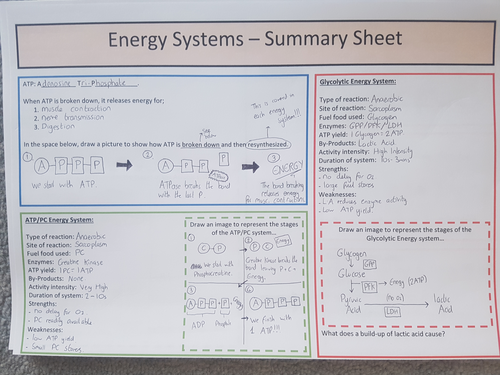 Energy Systems – Summary Sheet
ATP: Adenosine Tri-Phosphate
When ATP is broken down, it releases energy for;
1. Muscle contraction
2. Nerve transmission
3. Digestion
This is covered in
each energy
system!!!
In the space below, draw a picture to show how ATP is broken down and then resynthesized.
1
A P P P
We start with ATP.
2
A P P P
ATPase
ATPase breaks the bond
with the last P.
3
ENERGY
The bond breaking
releases energy
for musc. contraction
ATP/PC Energy System:
Type of reaction: Anaerobic
Site of reaction: Sarcoplasm
Fuel food used: PC
Enzymes: Creatine Kinase
ATP yield: 1PC = 1ATP
By-Products: None
Activity intensity: Very High
Duration of system: 2-10s
Strengths:
- no delay for O2
- PC readily available
Weaknesses:
- low ATP yield
- Small PC stores
Draw an image to represent the stages of
the ATP/PC system...
1
C P
We start with
Phosphocreatine.
2
P C Energy
Creatine Kinase breaks the
bond leaving P + C +
Energy.
3
A P P P
Energy
ADP Phosphate
4
A P P P
We finish with
1 ATP!!!
Glycolytic Energy System:
Type of reaction: Anaerobic
Site of reaction: Sarcoplasm
Fuel food used: Glycogen
Enzymes: GPP/PFK/LDH
ATP yield: 1 Glycogen = 2ATP
By-Products: Lactic Acid
Activity intensity: High Intensity
Duration of system: 10s-3mins
Strengths:
- no delay for O2
- large fuel stores
Weaknesses:
- L.A reduces enzyme activity
- low ATP yield
Draw an image to represent the stages of the
Glycolytic Energy system...
Glycogen
GPP
Glucose
PFK
Energy (2ATP)
Pyruvic
Acid
(No O2)
LDH
lactic
Acid
What does a build-up of lactic acid cause?